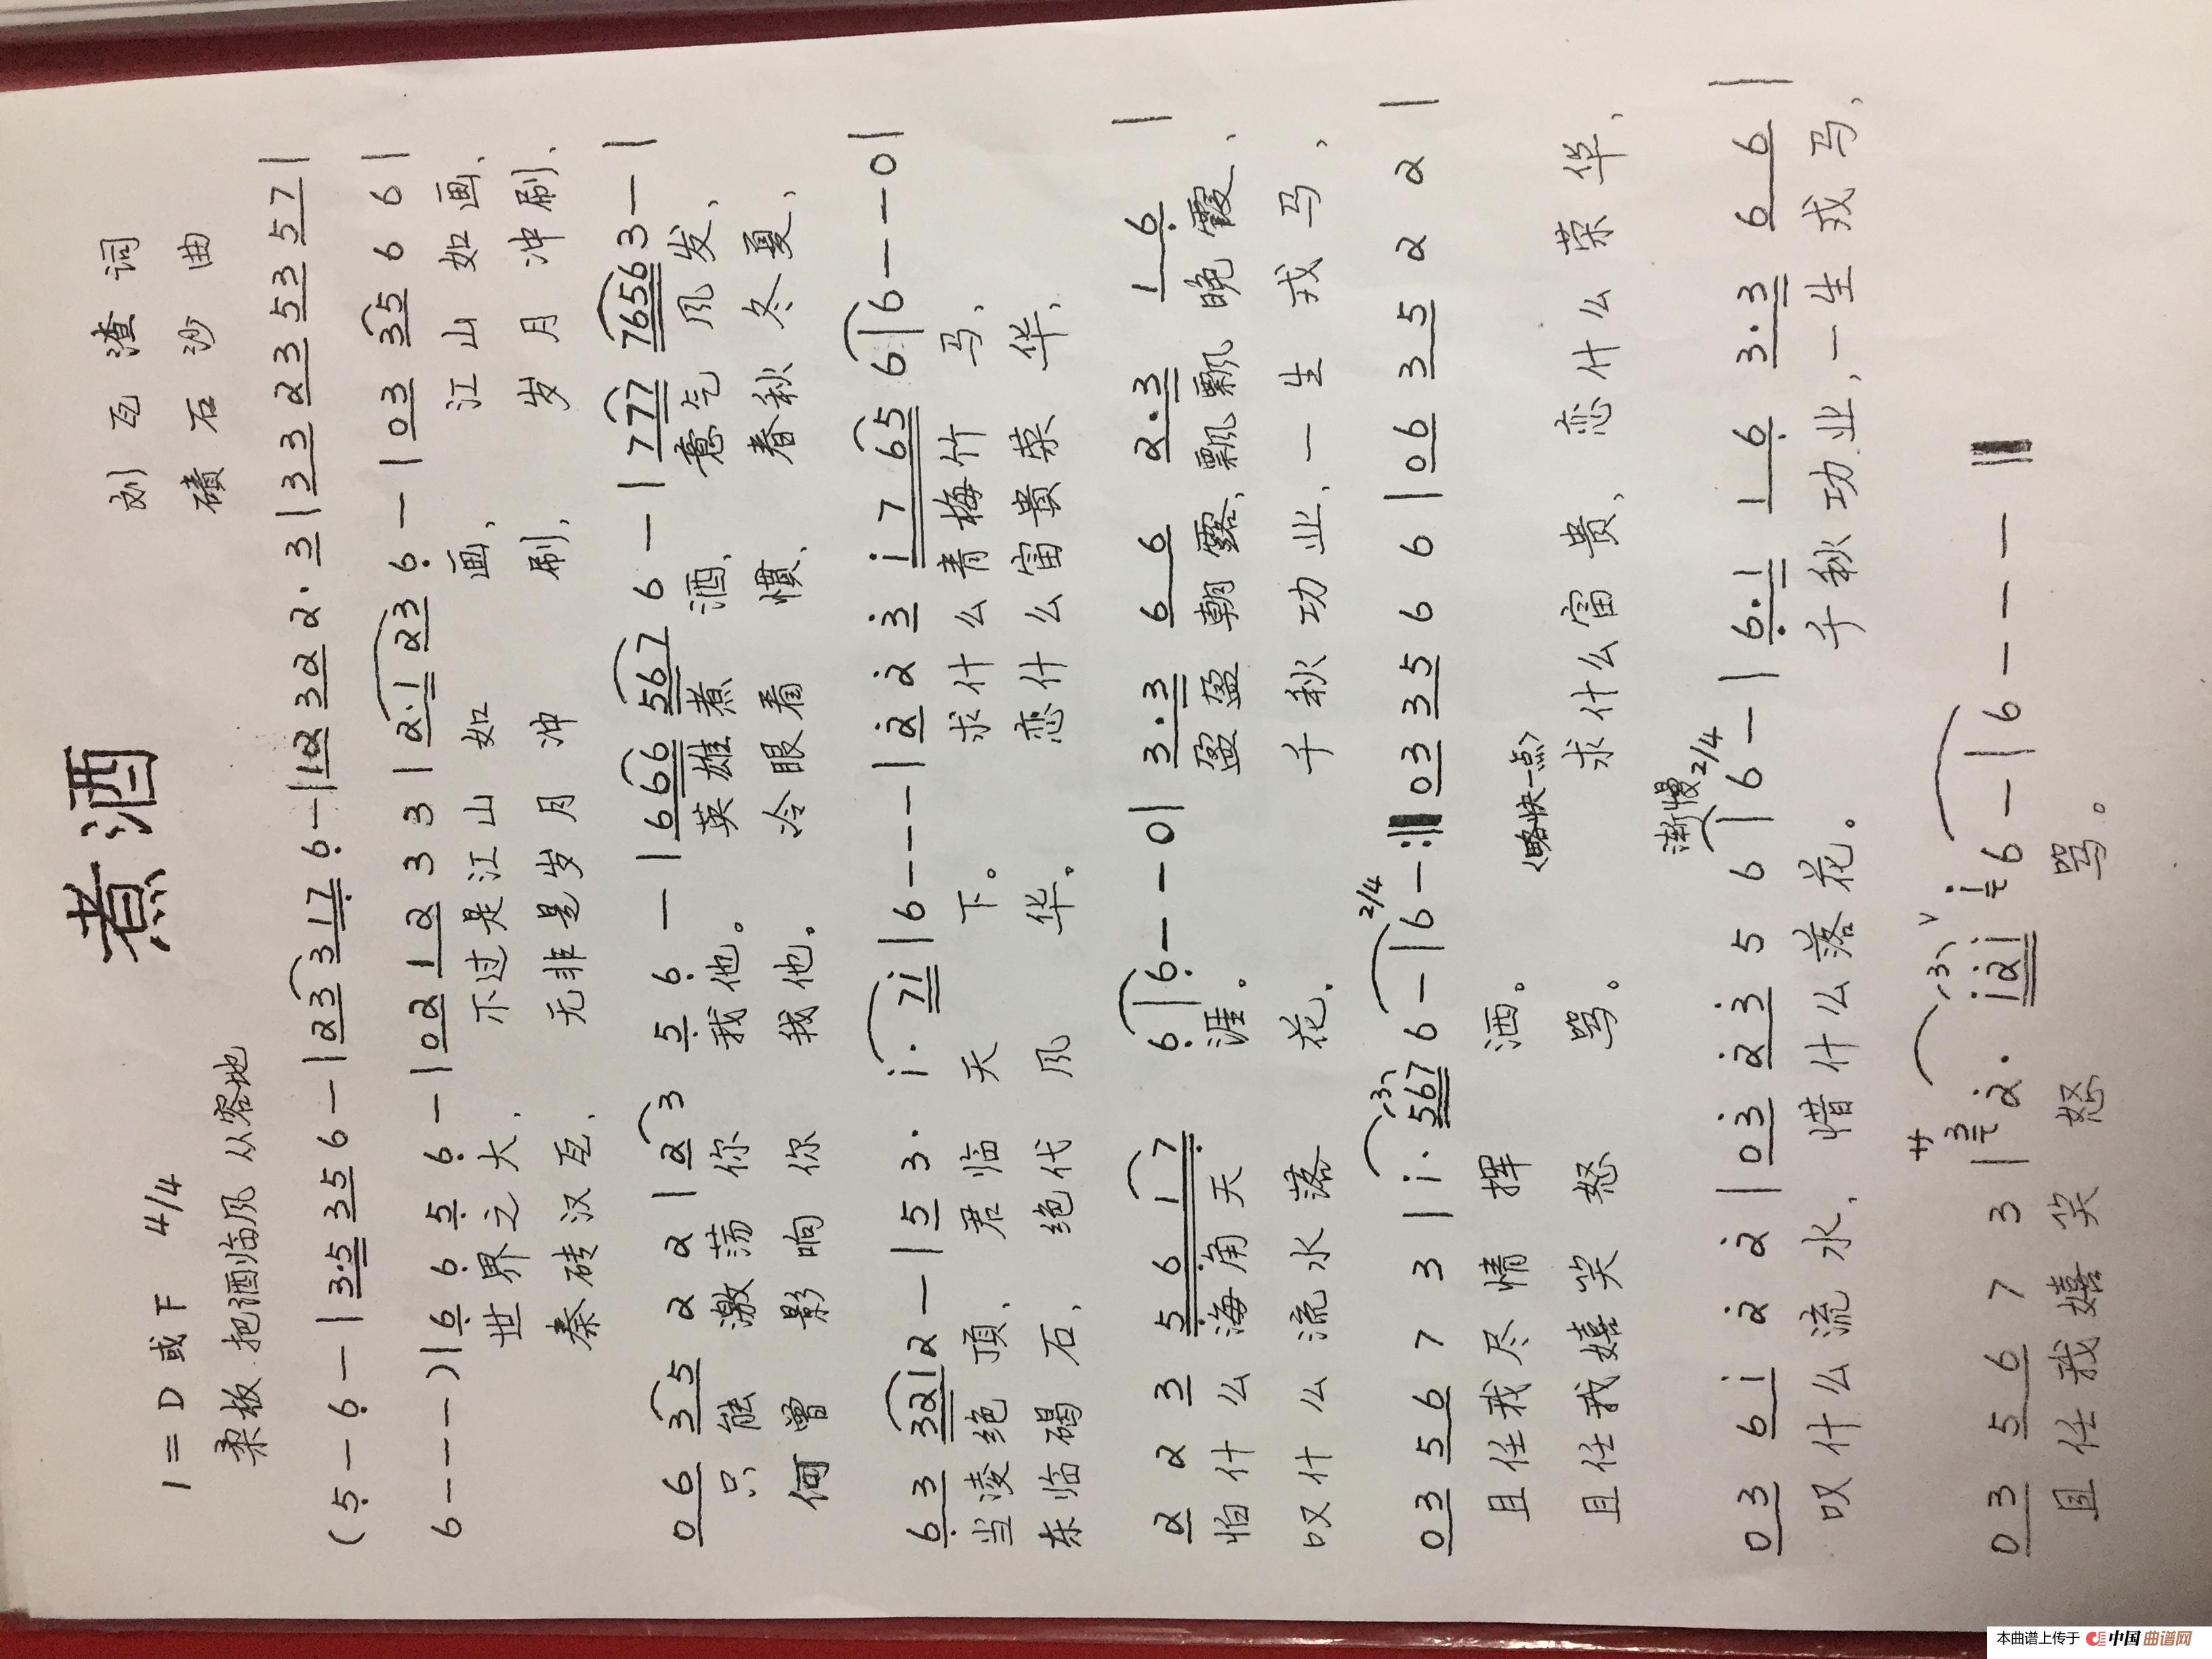 煮酒
1=D或F 4/4
刘瓦渣 词
柔板.把酒临风 从容地
碛石沙 曲
(5 — 6 — | 3·5 35 6 — | 23 317 6 — | 12 32 2·3 | 33 23 53 57 |
6 — — — ) | 6 6 5 6 — | 02 12 3 3 | 2·1 23 6 — | 03 35 6 6 |
世界之大, 不过是江山如画, 江山如画、
秦砖汉瓦、 无非是岁月冲刷, 岁月冲刷、
06 35 2 2 | 2 3 5 6 — | 666 567 6 — | 777 76563 — |
只能激荡你我他。 英雄煮酒、意气风发、
何曾影响你我他。 冷眼看惯、春秋冬夏、
63 3212 — | 5 3· i· 7i | 6 — — — | 2 2 3 i7 65 6 | 6 — — 0 |
当凌绝顶、君临天下。 求什么青梅竹马、
东临碣石, 绝代风华。 恋什么富贵荣华,
2 2 3 5 6 i 7 6 | 6 — — 0 | 3·3 6 6 2·3 1 6 |
怕什么海角天涯。 盈盈朝露、飘飘晚霞、
叹什么流水落花、 千秋功业、一生戎马,
03 56 7 3 | i· 567 6 — | 6 — :‖ 03 35 6 6 | 06 35 2 2 |
3
2/4
且任我尽情挥洒。 〈略快一点〉
且任我嬉笑怒骂。 求什么富贵、恋什么荣华、
渐慢 2/4
03 6i 2 2 | 03 23 5 6 | 6 — | 6·1 1 6 3·3 6 6 |
叹什么流水, 惜什么落花。 千秋功业,一生戎马,
03 56 7 3 | 3 2· i2i i 6 — | 6 — — — ‖
サ 3 V
且任我嬉笑怒骂。
本曲谱上传于 中国曲谱网